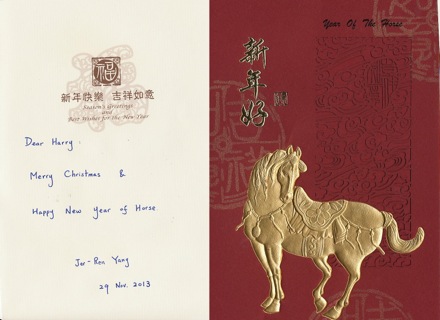 福
新年快樂 吉祥如意
Season's Greetings
and
Best Wishes for the New Year
Dear Harry:
Merry Christmas &
Happy New Year of Horse
Jer-Ren Yang
29 Nov. 2013
Year Of The Horse
新年好